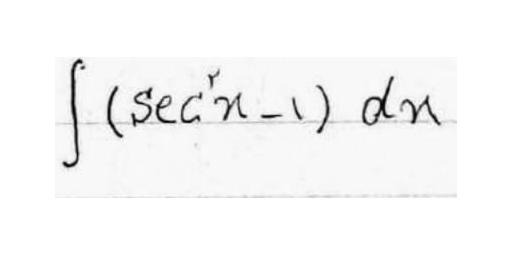 ∫ (sec²x - 1) dx